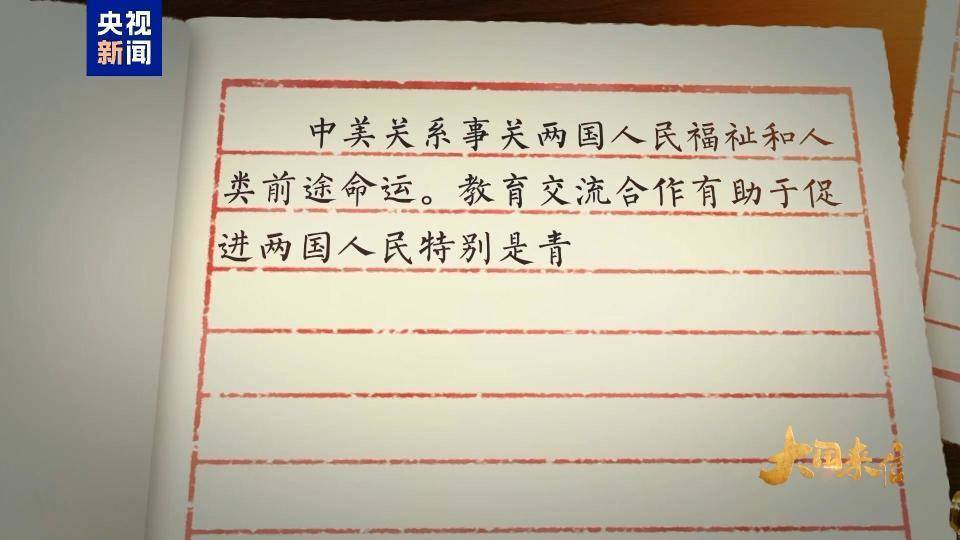 央视
新闻
中美关系事关两国人民福祉和人
类前途命运。教育交流合作有助于促
进两国人民特别是青
大国来信